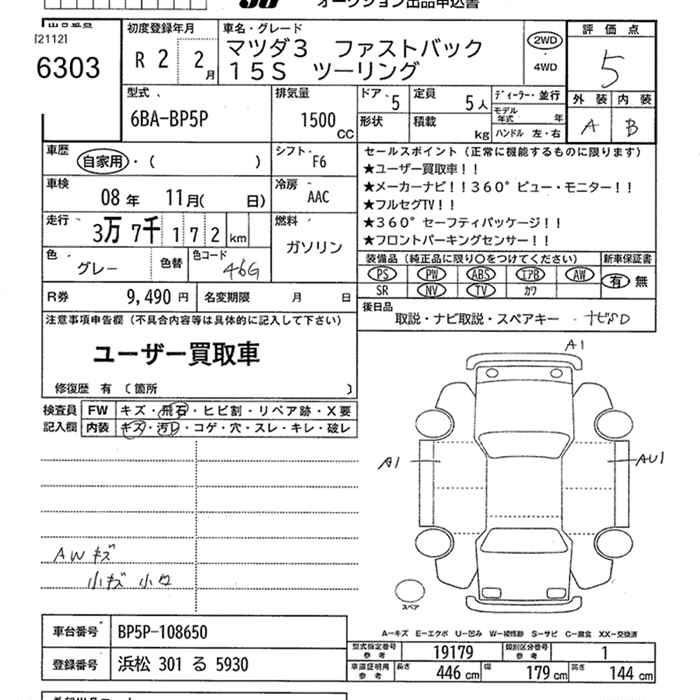 オークション出品申込書
[2112]
6303
初度登録年月
R 2 2月
車名・グレード
マツダ3 ファストバック
15S ツーリング
2WD
・
4WD
評価点
5
外装 内装
A B
型式
6BA-BP5P
排気量
1500 CC
ドア 5
定員 5人
形状
積載 kg
ディーラー・並行
モデル年式 年
ハンドル 左・右
車歴
自家用・( )
シフト
F6
車検
08年 11月( 日)
冷房
AAC
走行
3万 7千 1 7 2 km
燃料
ガソリン
色
グレー
色替
色コード
46G
セールスポイント(正常に機能するものに限ります)
★ユーザー買取車!!
★メーカーナビ!!360°ビュー・モニター!!
★フルセグTV!!
★360°セーフティパッケージ!!
★フロントパーキングセンサー!!
装備品(純正品に限り○をつけてください)
PS PW ABS エアB AW
SR NV TV カワ
新車保証書
有 無
R券 9,490円
名変期限 月 日
後日品
取説・ナビ取説・スペアキー・ナビSD
注意事項申告欄(不具合内容等は具体的に記入して下さい)
ユーザー買取車
修復歴 有 〔箇所 〕
検査員
記入欄
FW キズ・飛石・ヒビ割・リペア跡・X要
内装 キズ・汚レ・コゲ・穴・スレ・キレ・破レ
A1
A1
AU1
AWキズ
小キズ 小凹
スペア
A―キズ E―エクボ U―凹み W―補修跡 S―サビ C―腐食 XX―交換済
車台番号 BP5P-108650
登録番号 浜松 301 る 5930
型式指定番号 参考 19179
類別区分番号 参考 1
車庫証明用 参考
長さ 446 cm
幅 179 cm
高さ 144 cm